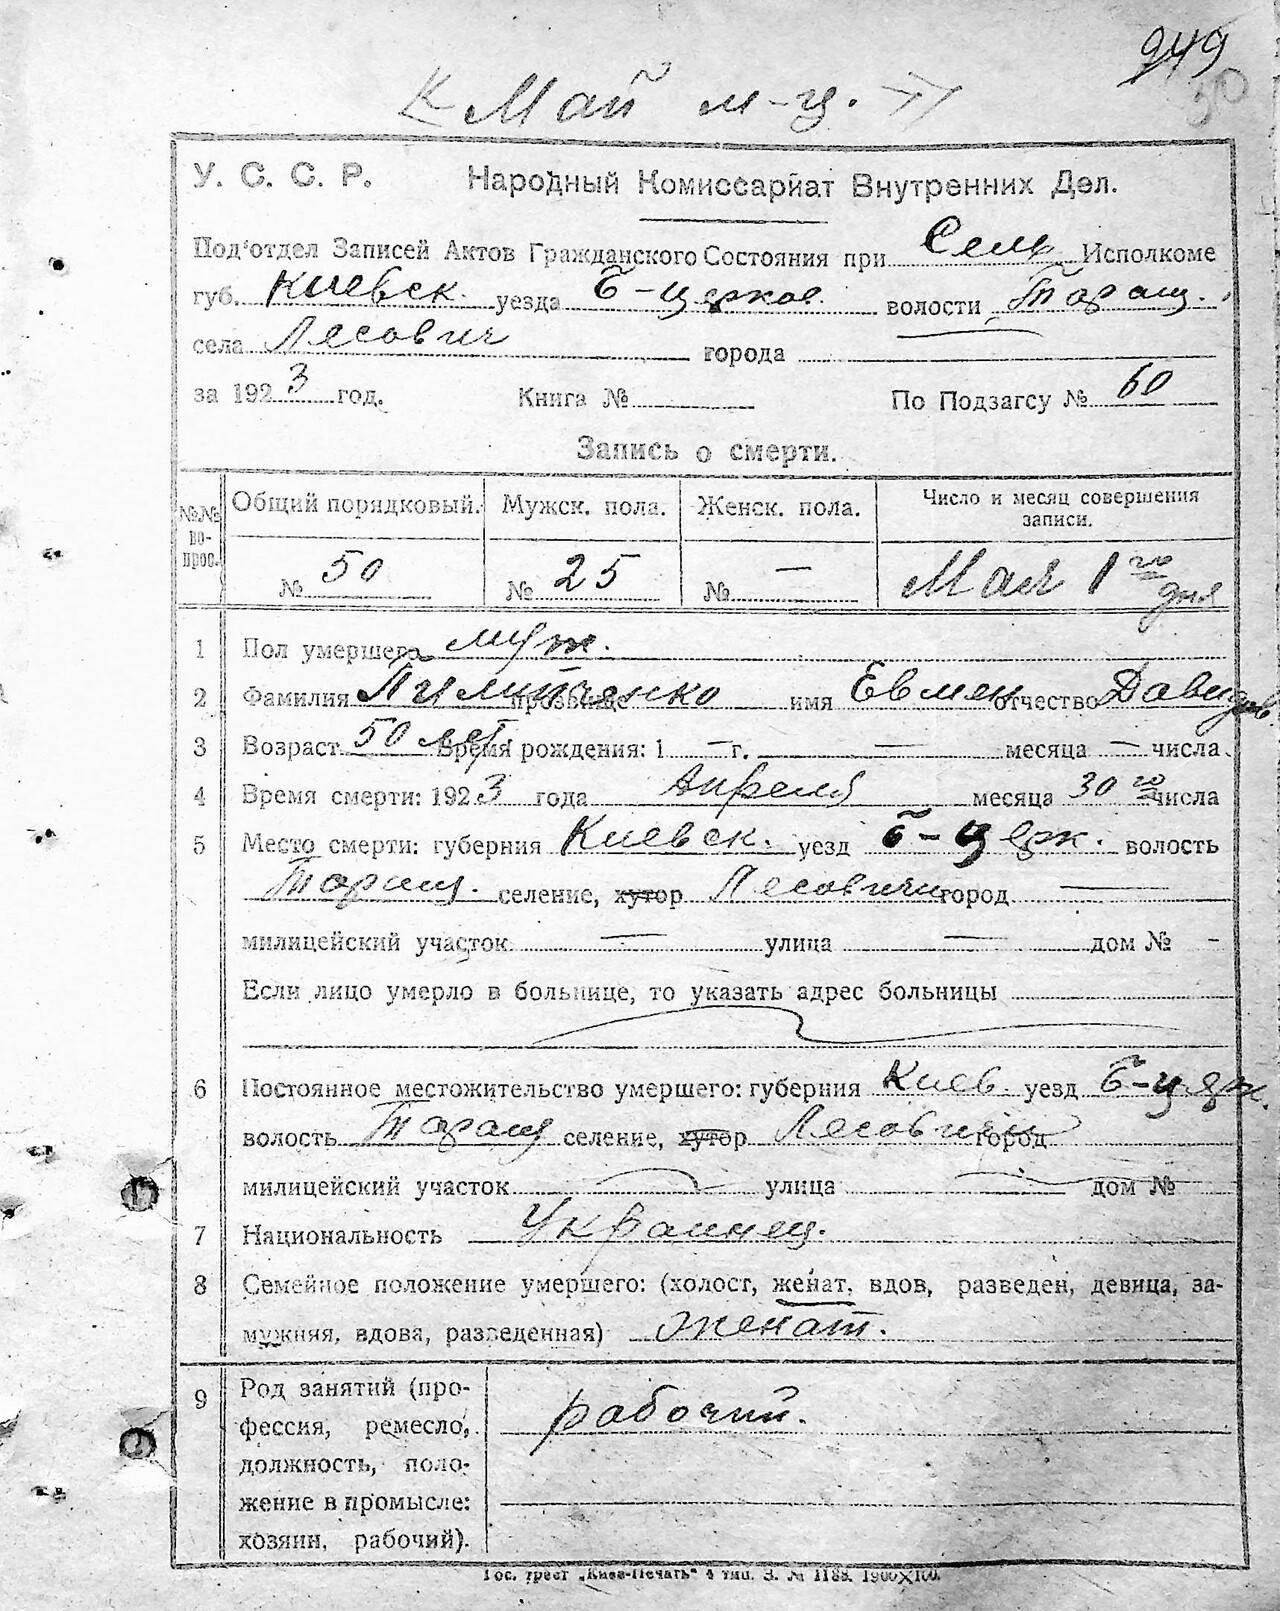 949
50
« Май м-ц. »
У. С. С. Р. Народный Комиссариат Внутренних Дел.
Под'отдел Записей Актов Гражданского Состояния при Сель Исполкоме
губ. Киевск. уезда Б-церков. волости Таращ.
села Лесович города —
за 1923 год. Книга № По Подзагсу № 60
Запись о смерти.
№№ во-прос. Общий порядковый. Мужск. пола. Женск. пола. Число и месяц совершения записи.
№ 50 № 25 № — Мая 1го дня
1 Пол умершего муж.
2 Фамилия Пилипченко прозвище имя Евмен отчество Давидов.
3 Возраст 50 лет Время рождения: 1 — г. — месяца — числа
4 Время смерти: 1923 года Апреля месяца 30го числа
5 Место смерти: губерния Киевск. уезд Б-церк. волость
Таращ. селение, хутор Лесовичи город —
милицейский участок — улица — дом № -
Если лицо умерло в больнице, то указать адрес больницы
6 Постоянное местожительство умершего: губерния Киев. уезд Б-церк.
волость Таращ селение, хутор Лесовичи город
милицейский участок — улица — дом №
7 Национальность Украинец.
8 Семейное положение умершего: (холост, женат, вдов, разведен, девица, за-
мужняя, вдова, разведенная) женат.
9 Род занятий (про-
фессия, ремесло,
должность, поло-
жение в промысле:
хозяин, рабочий).
рабочий.
Гос. трест „Киев-Печать" 4 тип. З. № 1188. 1900X100.